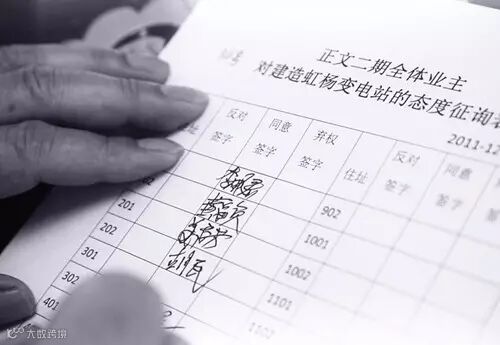 正文二期全体业主
对建造虹杨变电站的态度征询表
2011-12
住址 反对签字 同意签字 弃权签字 住址 反对签字 同意签字
02 902
201 1001
202 1002
301 1101
302 1102
401
大数跨境